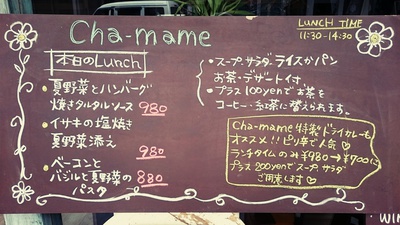 Cha-mame
LUNCH TIME
11:30-14:30
本日のLunch
・夏野菜とハンバーグ
焼きタルタルソース 980
・イサキの塩焼き
夏野菜添え
980
・ベーコンと
バジルと夏野菜の 880
パスタ
・スープ、サラダ、ライスかパン
お茶・デザート付
・プラス100yenでお茶を
コーヒー・紅茶に替えられます。
Cha-mame 特製ドライカレーも
オススメ!!ピリ辛で人気♡
ランチタイムのみ¥980→¥700に
プラス200yenでスープ、サラダ
ご用意します♡
WIN